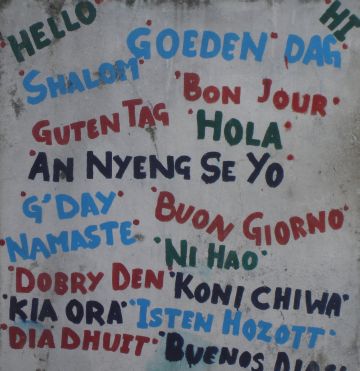 HELLO
HI
GOEDEN DAG
SHALOM
BON JOUR
GUTEN TAG
HOLA
AN NYENG SE YO
G'DAY
BUON GIORNO
NAMASTE
NI HAO
DOBRY DEN
KONI CHIWA
KIA ORA
ISTEN HOZOTT
DIA DHUIT
BUENOS DIAS